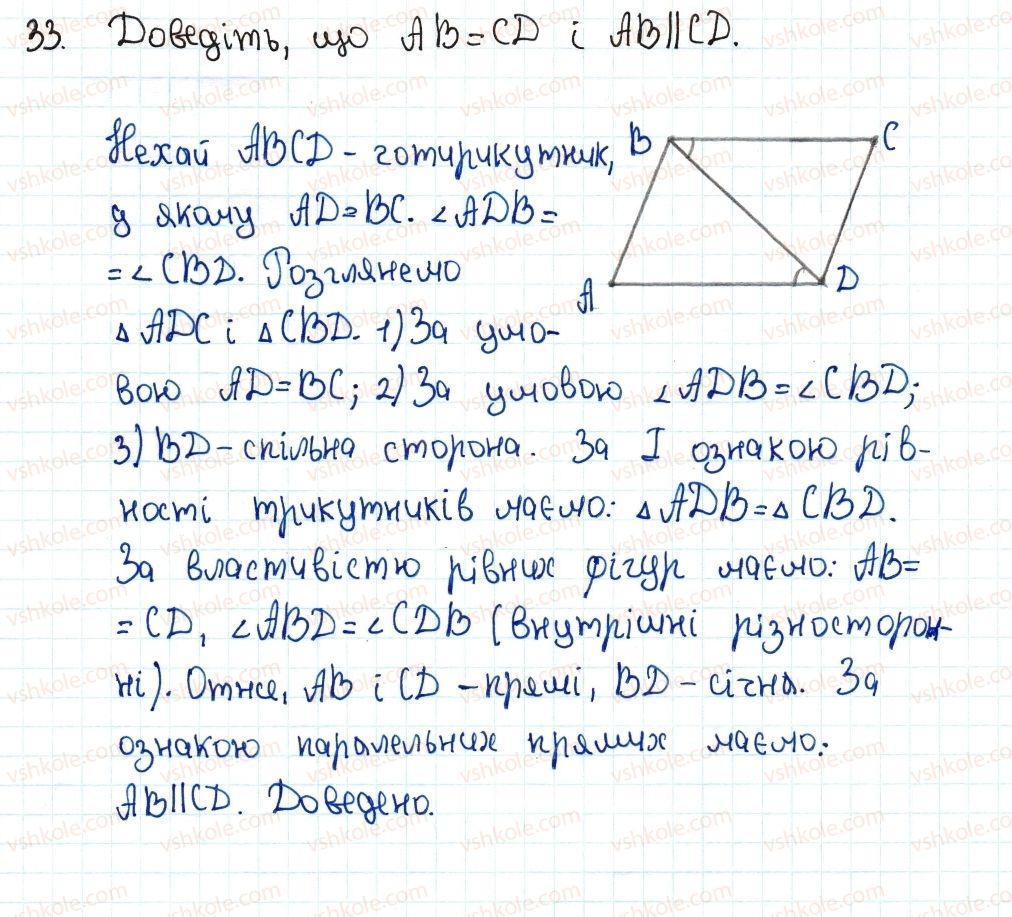 33. Доведіть, що AB=CD і AB||CD.
Нехай ABCD - чотирикутник,
у якому AD=BC. ∠ADB=
=∠CBD. Розглянемо
△ADC і △CBD. 1) За умо-
вою AD=BC; 2) За умовою ∠ADB=∠CBD;
3) BD-спільна сторона. За I ознакою рів-
ності трикутників маємо: △ADB=△CBD.
За властивістю рівних фігур маємо: AB=
=CD, ∠ABD=∠CDB (внутрішні різносторон-
ні). Отже, AB і CD -прямі, BD-січна. За
ознакою паралельних прямих маємо:
AB||CD. Доведено.
B
C
A
D